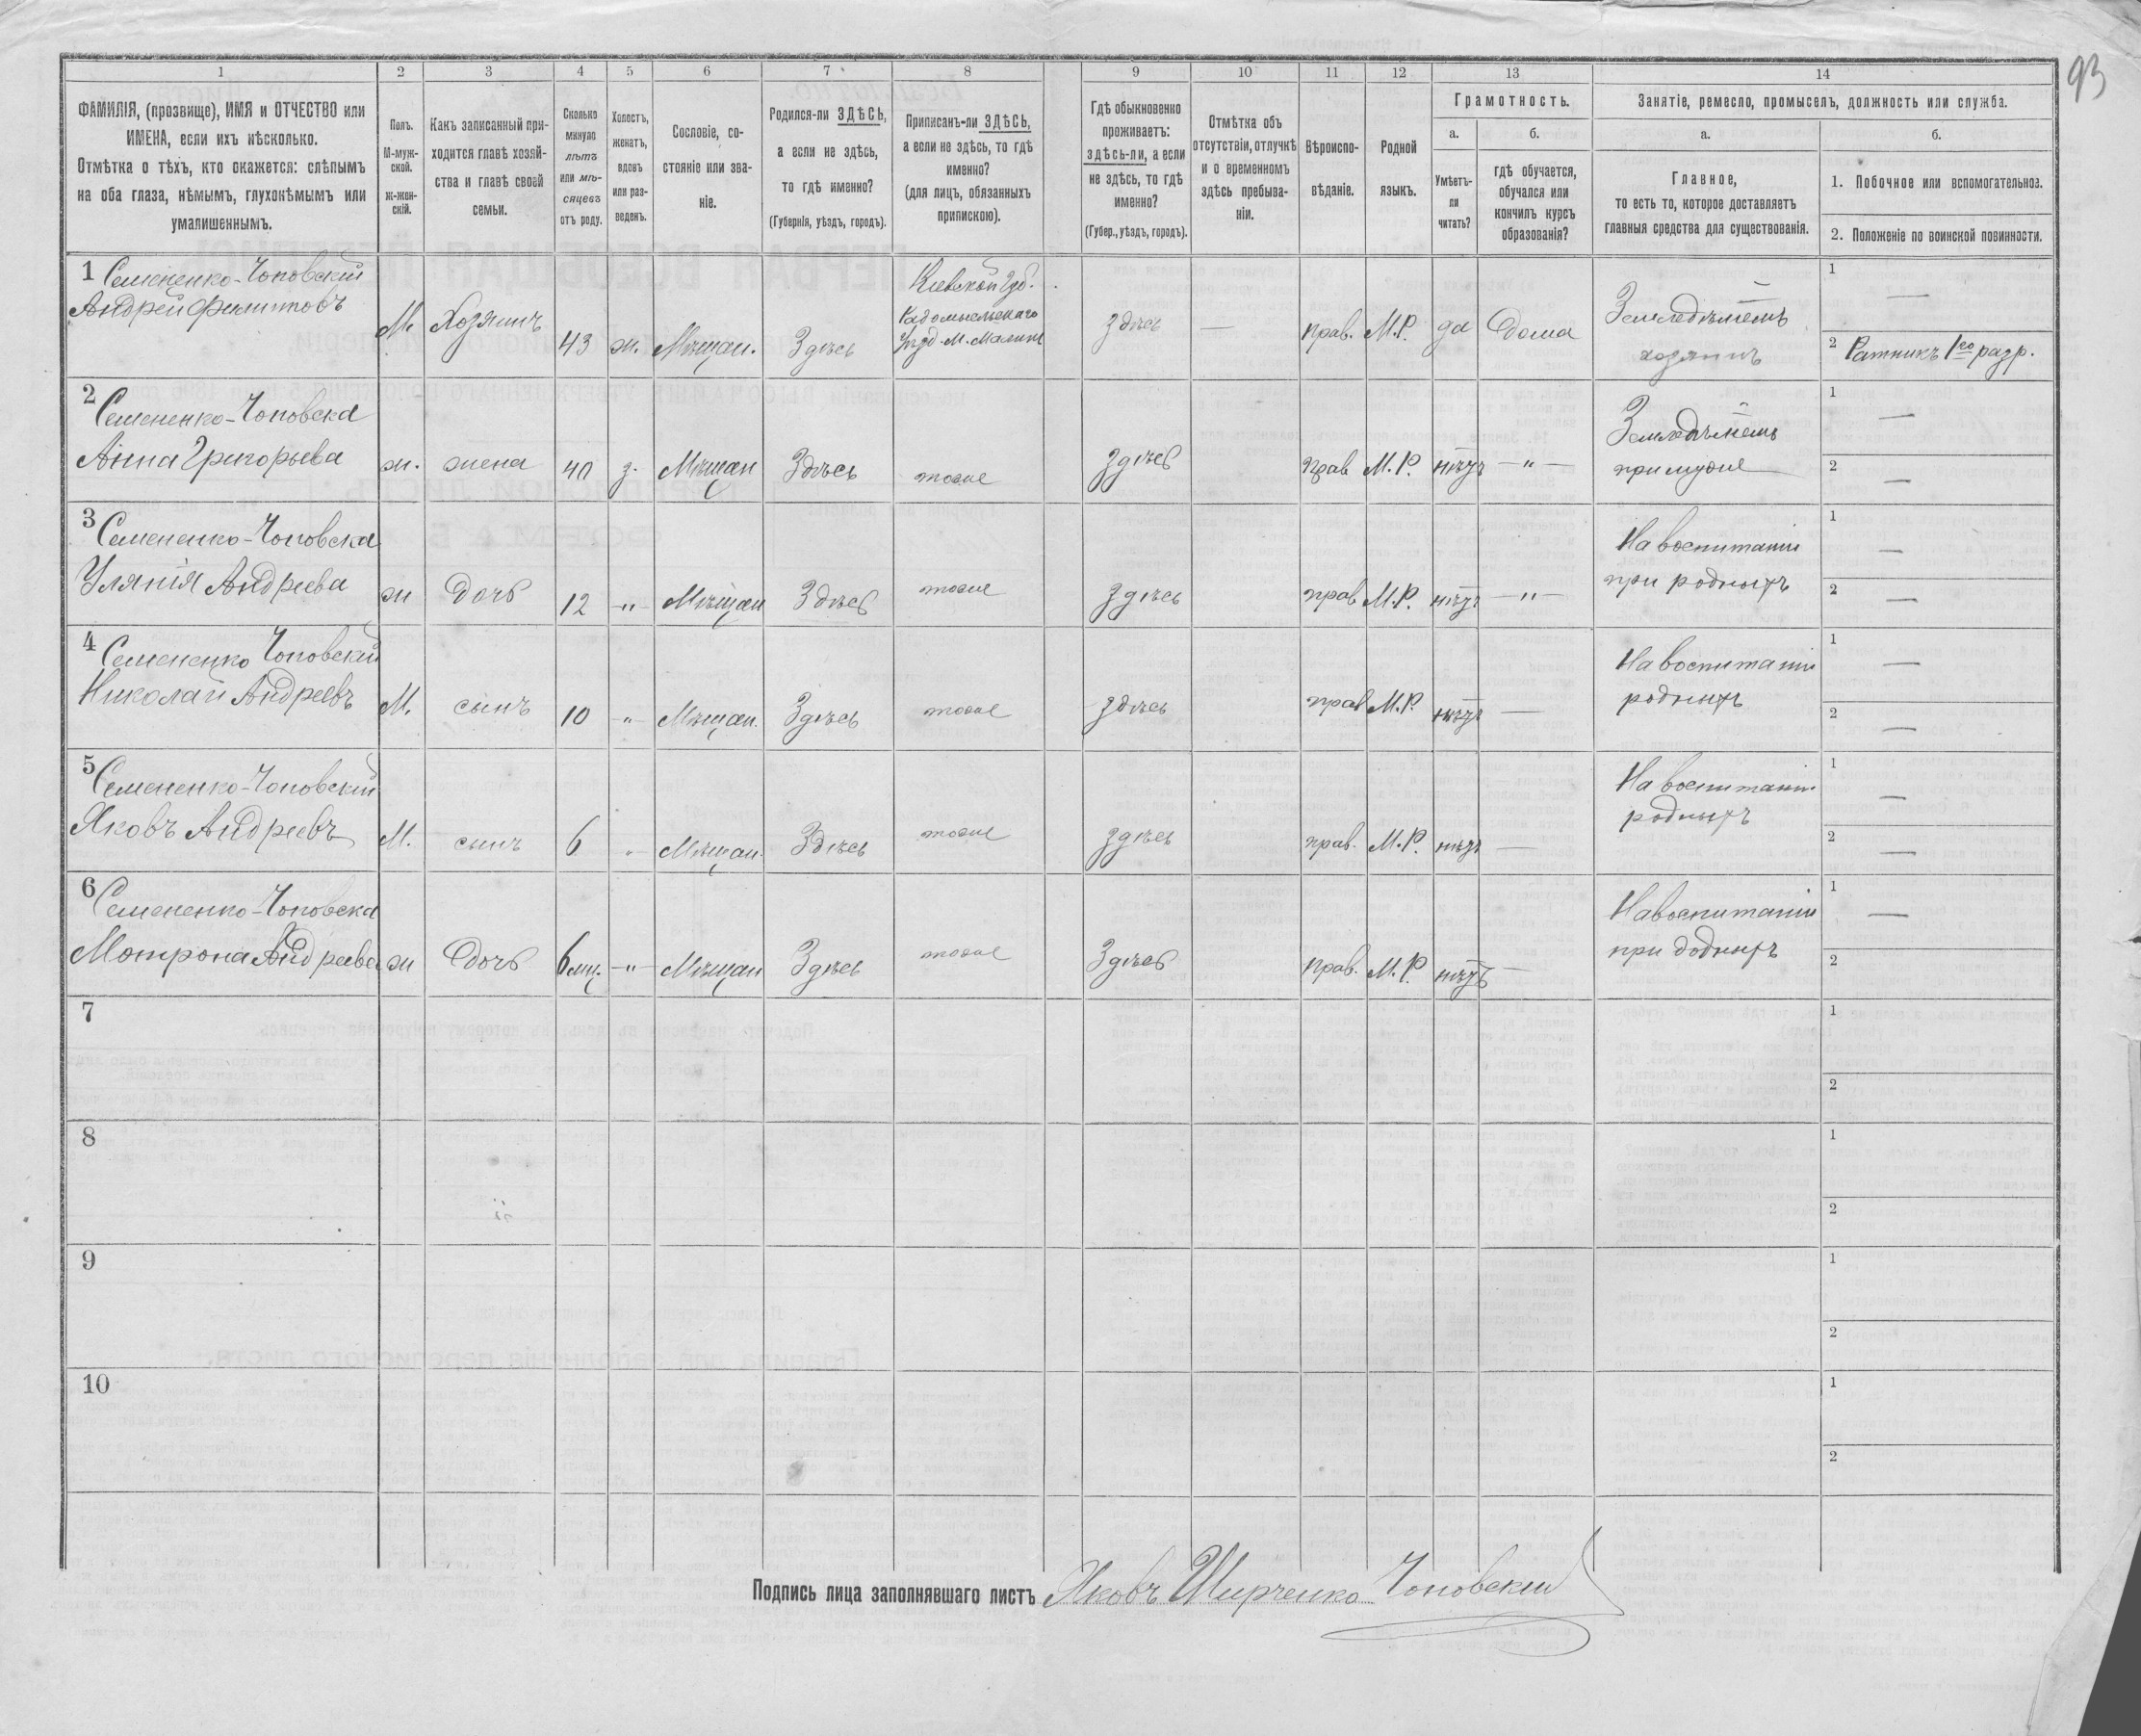 93
1 2 3 4 5 6 7 8 9 10 11 12 13 14
ФАМИЛІЯ, (прозвище), ИМЯ и ОТЧЕСТВО или
ИМЕНА, если ихъ нѣсколько.
Отмѣтка о тѣхъ, кто окажется: слѣпымъ
на оба глаза, нѣмымъ, глухонѣмымъ или
умалишеннымъ.
Полъ.
М-муж-
ской.
Ж-жен-
скій.
Какъ записанный при-
ходится главѣ хозяй-
ства и главѣ своей
семьи.
Сколько
минуло
лѣтъ
или мѣ-
сяцевъ
отъ роду.
Холостъ,
женатъ,
вдовъ
или раз-
веденъ.
Сословіе, со-
стояніе или зва-
ніе.
Родился-ли ЗДѢСЬ,
а если не здѣсь,
то гдѣ именно?
(Губернія, уѣздъ, городъ).
Приписанъ-ли ЗДѢСЬ,
а если не здѣсь, то гдѣ
именно?
(для лицъ, обязанныхъ
припискою).
Гдѣ обыкновенно
проживаетъ:
здѣсь-ли, а если
не здѣсь, то гдѣ
именно?
(Губер., уѣздъ, городъ).
Отмѣтка объ
отсутствіи, отлучкѣ
и о временномъ
здѣсь пребыва-
ніи.
Вѣроиспо-
вѣданіе.
Родной
языкъ.
Грамотность.
а.
Умѣетъ-
ли
читать?
б.
гдѣ обучается,
обучался или
кончилъ курсъ
образованія?
Занятіе, ремесло, промыселъ, должность или служба.
а.
Главное,
то есть то, которое доставляетъ
главныя средства для существованія.
б.
1. Побочное или вспомогательное.
2. Положеніе по воинской повинности.
1 Семененко-Чоповский
Андрей Филиповъ
М. Хозяинъ 43 ж. Мѣщан. Здѣсь
Кіевской Губ.
Радомысльскаго
Уѣзд. М. Малинъ
здѣсь — прав. М.Р. да Дома
Земледѣлiемъ
хозяинъ
1 —
2 Ратникъ 1го разр.
2 Семененко-Чоповска
Анна Григорьева
ж. жена 40 з. Мѣщан Здѣсь тоже здѣсь прав М.Р. нѣтъ — " —
Земледѣлiемъ
при мужѣ
1 —
2 —
3 Семененко-Чоповска
Улянія Андреева
ж Дочь 12 — " — Мѣщан Здѣсь тоже здѣсь прав М.Р. нѣтъ — " —
На воспитании
при родныхъ
1 —
2 —
4 Семененко Чоповский
Николай Андреевъ
М. сынъ 10 — " — Мѣщан. Здѣсь тоже здѣсь прав М.Р. нѣтъ —
На воспитании
родныхъ
1 —
2 —
5 Семененко-Чоповский
Яковъ Андреевъ
М. сынъ 6 " Мѣщан. Здѣсь тоже здѣсь прав. М.Р. нѣтъ —
На воспитании
родныхъ
1 —
2 —
6 Семененко-Чоповска
Мотрона Андреева
ж Дочь 6 мц. — " — Мѣщан Здѣсь тоже Здѣсь прав. М.Р. нѣтъ —
На воспитании
при додныхъ
1 —
2
7
1
2
8
1
2
9
1
2
10
1
2
Подпись лица заполнявшаго листъ Яковъ Ширченко Чоповский